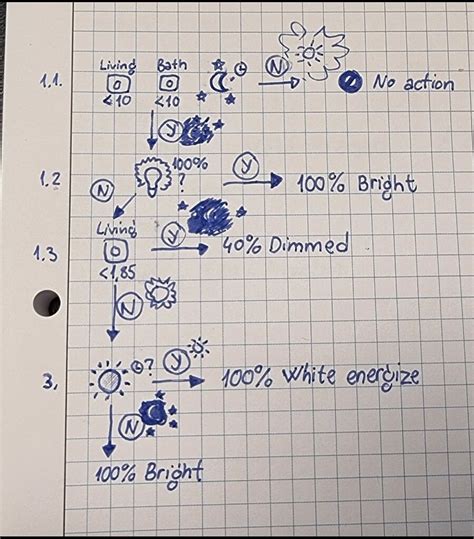 Living Bath
1.1. <10 <10 N No action
Y
1.2 100% ? Y 100% Bright
N
Living
1.3 Y 40% Dimmed
<1,85
N
3. ? Y 100% White energize
N
100% Bright